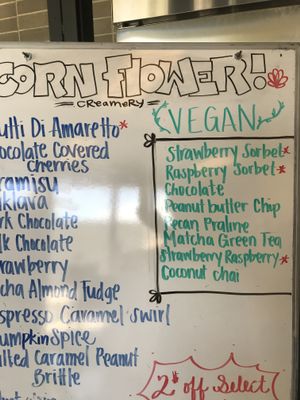 CORN FLOWER!
= CREAMERY =
VEGAN
utti Di Amaretto*
ocolate Covered
cherries
ramisu
klava
rk Chocolate
lk Chocolate
rawberry
cha Almond Fudge
spresso Caramel swirl
umpkin Spice
lted Caramel Peanut
Brittle
Strawberry Sorbet*
Raspberry Sorbet*
Chocolate
Peanut butter Chip
Pecan Praline
Matcha Green Tea
Strawberry Raspberry*
Coconut chai
2$ off Select